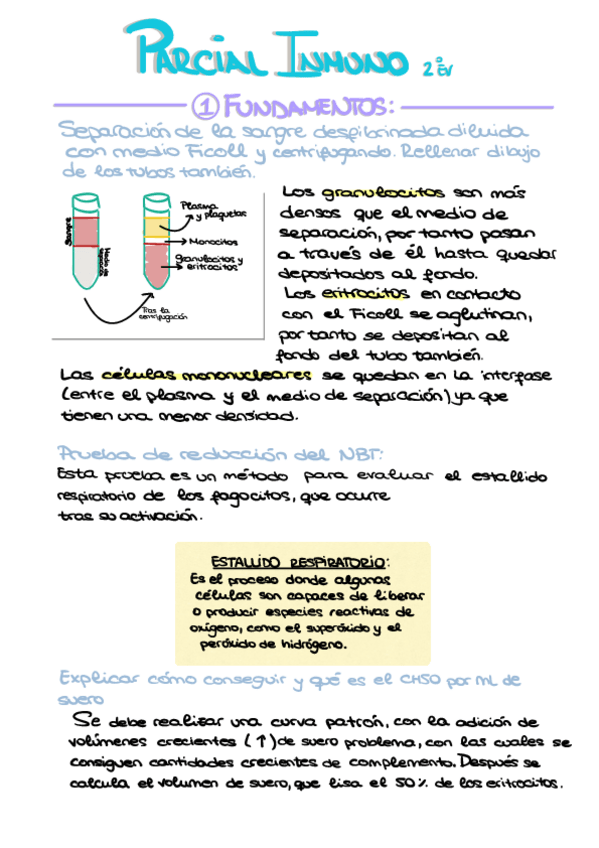 PARCIAL INMUNO 2ºEV
① FUNDAMENTOS:
Separación de la sangre desfibrinada diluida
con medio Ficoll y centrifugando. Rellenar dibujo
de los tubos también.
Sangre
Medio de separación
Tras la centrifugación
Plasma y plaquetas
Monocitos
Granulocitos y eritrocitos
Los granulocitos son más
densos que el medio de
separación, por tanto pasan
a través de él hasta quedar
depositados al fondo.
Los eritrocitos en contacto
con el Ficoll se aglutinan,
por tanto se depositan al
fondo del tubo también.
Las células mononucleares se quedan en la interfase
(entre el plasma y el medio de separación) ya que
tienen una menor densidad.
Prueba de reducción del NBT:
Esta prueba es un método para evaluar el estallido
respiratorio de los fagocitos, que ocurre
tras su activación.
ESTALLIDO RESPIRATORIO:
Es el proceso donde algunas
células son capaces de liberar
o producir especies reactivas de
oxígeno, como el superóxido y el
peróxido de hidrógeno.
Explicar cómo conseguir y qué es el CH50 por mL de
suero
Se debe realizar una curva patrón, con la adición de
volúmenes crecientes (↑) de suero problema, con las cuales se
consiguen cantidades crecientes de complemento. Después se
calcula el volumen de suero, que lisa el 50% de los eritrocitos.